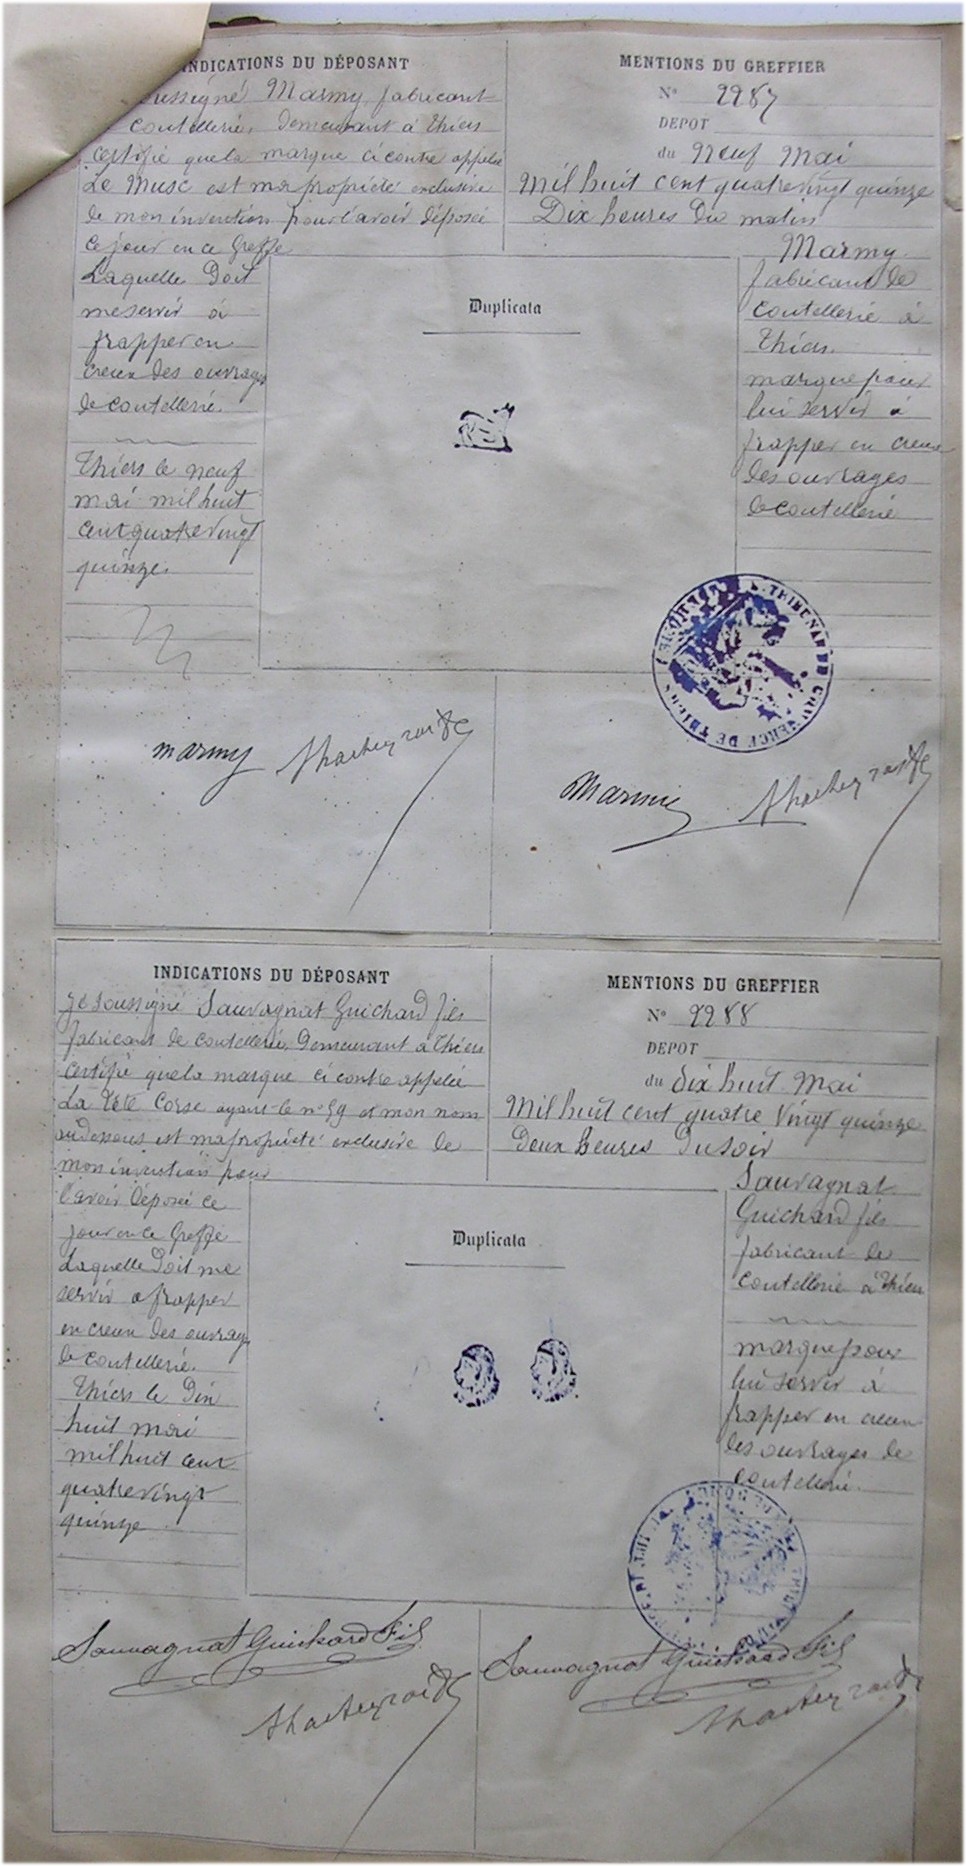 INDICATIONS DU DÉPOSANT
oussigné Marmy fabricant
coutellerie, Demeurant à Thiers
certifie que la marque ci contre appelée
Le Musc est ma propriété exclusive
de mon invention pour l'avoir déposée
ce jour en ce Greffe
Laquelle Doit
me servir à
frapper en
creux des ouvrages
de coutellerie.
Thiers le neuf
mai mil huit
cent quatre vingt
quinze.
MENTIONS DU GREFFIER
N° 2287
DEPOT
du Neuf Mai
Mil huit cent quatre vingt quinze
Dix heures Du matin
Marmy
fabricant de
coutellerie à
Thiers.
marque pour
lui servir à
frapper en creux
des ouvrages
de coutellerie
Duplicata
TRIBUNAL DE COMMERCE DE THIERS
marmy
Marmy
INDICATIONS DU DÉPOSANT
Je soussigné Sauvagnat Guichard fils
fabricant de coutellerie, Demeurant à Thiers
certifie que la marque ci contre appelée
La Tête Corse ayant le n° 59 et mon nom
au dessous est ma propriété exclusive de
mon invention pour
l'avoir Déposée ce
jour en ce Greffe
Laquelle Doit me
servir à frapper
en creux des ouvrages
de coutellerie.
Thiers le Dix
huit mai
mil huit cent
quatre vingt
quinze
MENTIONS DU GREFFIER
N° 2288
DEPOT
du dix huit Mai
Mil huit cent quatre Vingt quinze
Deux heures Du soir
Sauvagnat
Guichard fils
fabricant de
coutellerie à Thiers
marque pour
lui servir à
frapper en creux
des ouvrages de
coutellerie.
Duplicata
Sauvagnat Guichard Fils
Sauvagnat Guichard Fils